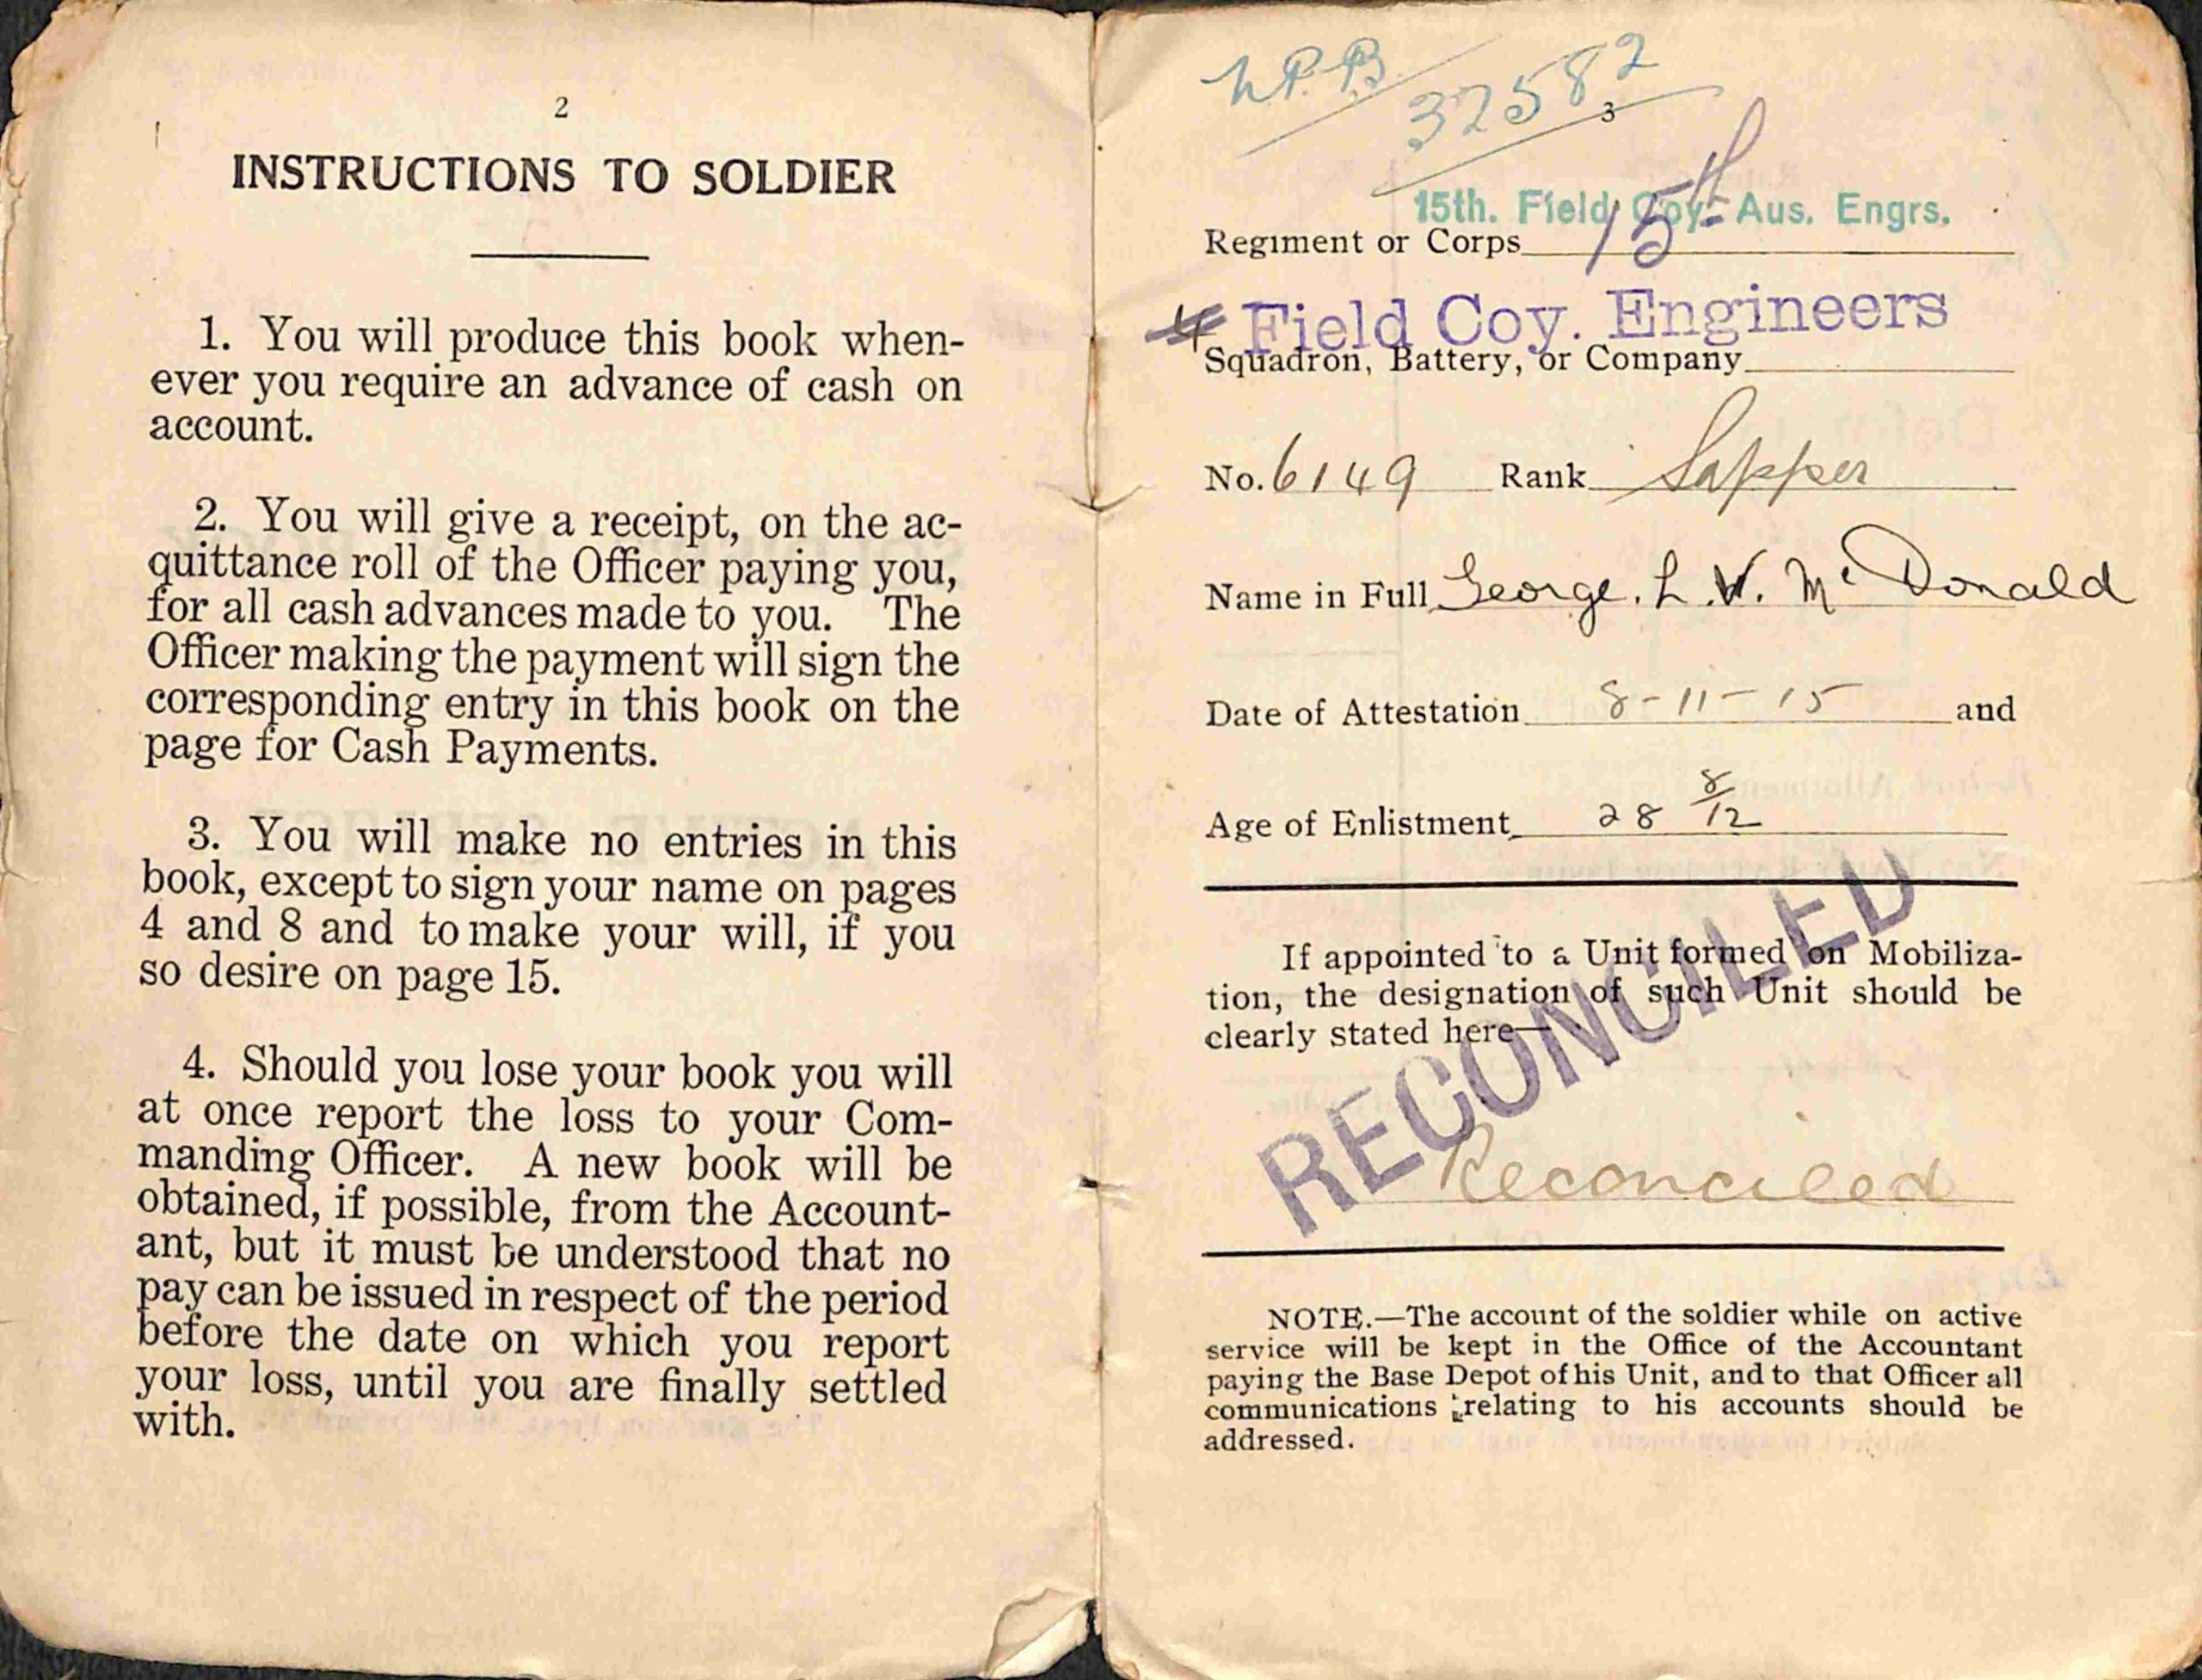 2
INSTRUCTIONS TO SOLDIER
1. You will produce this book when-
ever you require an advance of cash on
account.
2. You will give a receipt, on the ac-
quittance roll of the Officer paying you,
for all cash advances made to you. The
Officer making the payment will sign the
corresponding entry in this book on the
page for Cash Payments.
3. You will make no entries in this
book, except to sign your name on pages
4 and 8 and to make your will, if you
so desire on page 15.
4. Should you lose your book you will
at once report the loss to your Com-
manding Officer. A new book will be
obtained, if possible, from the Account-
ant, but it must be understood that no
pay can be issued in respect of the period
before the date on which you report
your loss, until you are finally settled
with.
32582
3
15th. Field Coy. Aus. Engrs.
Regiment or Corps 15th
Field Coy. Engineers
Squadron, Battery, or Company
No. 6149 Rank Sapper
Name in Full George. L. V. McDonald
Date of Attestation 8-11-15 and
Age of Enlistment 28 8/12
If appointed to a Unit formed on Mobiliza-
tion, the designation of such Unit should be
clearly stated here—
RECONCILED
Reconciled
NOTE.—The account of the soldier while on active
service will be kept in the Office of the Accountant
paying the Base Depot of his Unit, and to that Officer all
communications relating to his accounts should be
addressed.